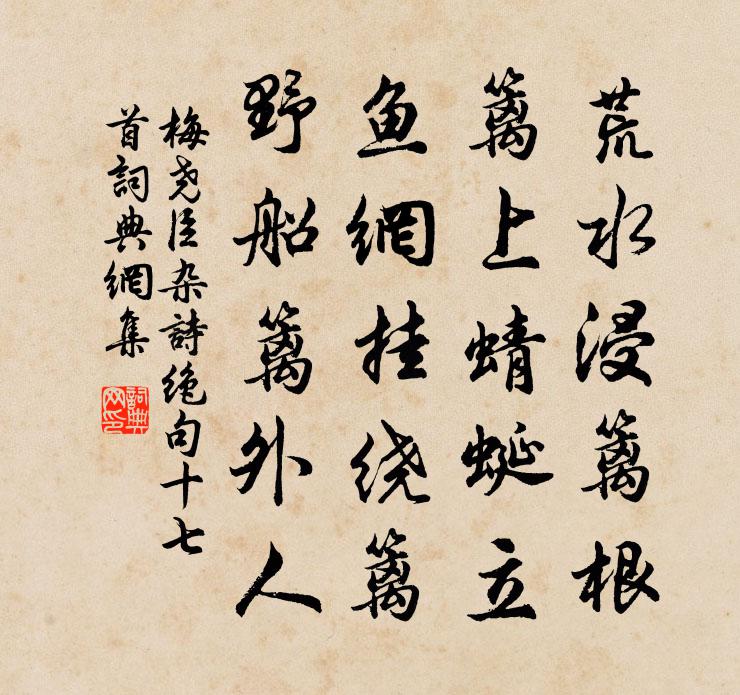 荒水浸篱根
篱上蜻蜓立
鱼網挂绕篱
野船篱外人
梅尧臣杂詩绝句十七
首詞典網集
詞典
网印